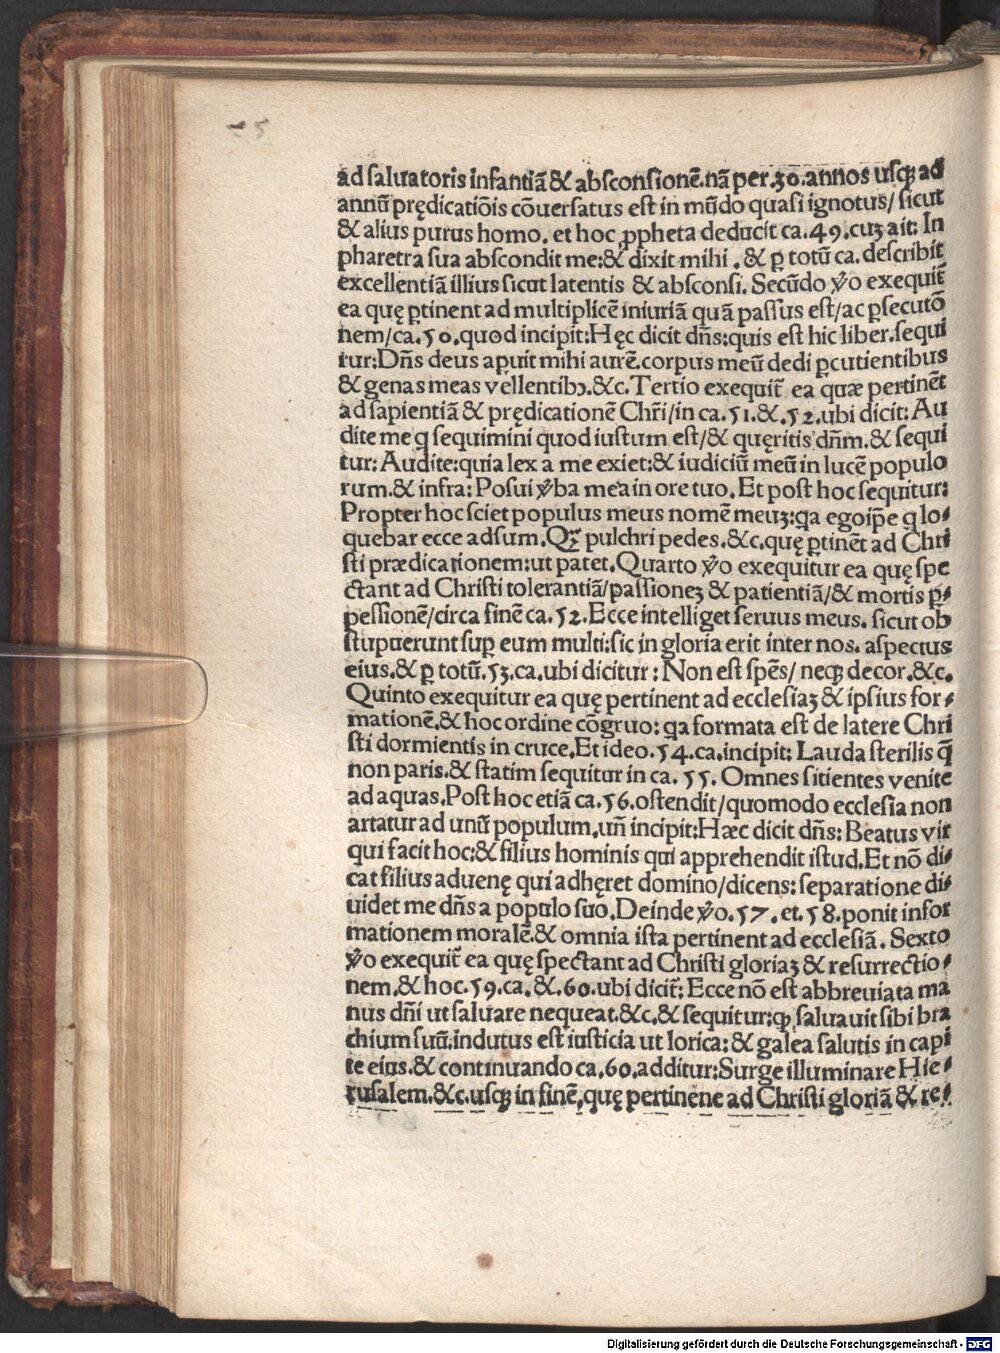 ad saluatoris infantiã & absconsionẽ.nã per.30.annos usqꝫ ad
annũ prędicatiõis cõuersatus est in mũdo quasi ignotus/ sicut
& alius purus homo. et hoc ꝓpheta deducit ca.49.cuꝫ ait: In
pharetra sua abscondit me:& dixit mihi . & ꝑ totũ ca. describit
excellentiã illius sicut latentis & absconsi. Secũdo ꝟo exequit̃
ea quę ꝑtinent ad multiplicẽ iniuriã quã passus est/ac ꝑsecutõ
nem/ca.50.quod incipit:Hęc dicit dñs:quis est hic liber.sequi
tur:Dñs deus apuit mihi aurẽ.corpus meũ dedi ꝑcutientibus
& genas meas vellentibꝰ.&c.Tertio exequit̃ ea quæ pertinẽt
ad sapientiã & prędicationẽ Chr̃i/in ca.51.&.52.ubi dicit: Au
dite me q sequimini quod iustum est/& quęritis dñm.& sequi
tur: Audite:quia lex a me exiet:& iudiciũ meũ in lucẽ populo
rum.& infra: Posui ꝟba mea in ore tuo. Et post hoc sequitur:
Propter hoc sciet populus meus nomẽ meuꝫ:qa ego ip̃e q lo⸗
quebar ecce adsum.Qꝫ pulchri pedes.&c.quę ꝑtinẽt ad Chri
sti prædicationem:ut patet.Quarto ꝟo exequitur ea quę spe
ctant ad Christi tolerantiã/passioneꝫ & patientiã/& mortis ꝑ⸗
pessionẽ/circa finẽ ca.52.Ecce intelliget seruus meus. sicut ob
stupuerunt suꝑ eum multi:sic in gloria erit inter nos. aspectus
eius.& ꝑ totũ.53.ca.ubi dicitur : Non est spẽs/ neqꝫ decor.&c.
Quinto exequitur ea quę pertinent ad ecclesiaꝫ & ipsius for⸗
mationẽ.& hoc ordine cõgruo: qa formata est de latere Chri
sti dormientis in cruce.Et ideo.54.ca.incipit: Lauda sterilis q̃
non paris.& statim sequitur in ca. 55. Omnes sitientes venite
ad aquas.Post hoc etiã ca.56.ostendit/quomodo ecclesia non
artatur ad unũ populum.uñ incipit:Hæc dicit dñs: Beatus vir
qui facit hoc:& filius hominis qui apprehendit istud.Et nõ di⸗
cat filius aduenę qui adhęret domino/dicens: separatione di⸗
uidet me dñs a populo suo.Deinde ꝟo.57. et.58.ponit infor
mationem moralẽ.& omnia ista pertinent ad ecclesiã. Sexto
ꝟo exequit̃ ea quę spectant ad Christi gloriaꝫ & resurrectio⸗
nem.& hoc.59.ca.&.60.ubi dicit̃: Ecce nõ est abbreuiata ma
nus dñi ut saluare nequeat.&c.& sequitur:qꝫ saluauit sibi bra
chium suũ.indutus est iusticia ut lorica:& galea salutis in capi
te eius.& continuando ca.60.additur:Surge illuminare Hie⸗
rusalem.&c.usqꝫ in finẽ,quę pertinene ad Christi gloriã & re⸗
Digitalisierung gefördert durch die Deutsche Forschungsgemeinschaft - DFG